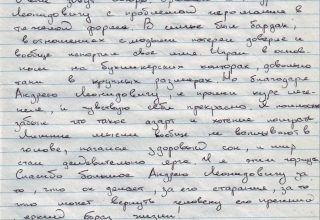 Леонидовичу с проблемой игромании в
тяжелой форме. В семье был бардак,
в отношениях с людьми потерял доверие и
вообще испортил свое имя. Играл в основ
ном на букмекерских конторах, довольно
таки в крупных размерах. Но благодаря
Андрею Леонидовичу, я прошел курс лече-
ния, и чувствую себя прекрасно и полностью
забыл что такое азарт и хотение поиграть
Лишние мысли вообще не всплывают в
голове, начался здоровый сон, и мир
стал действительно ярче. И я этим горжусь
Спасибо большое Андрею Леонидовичу за
то, что он делает, за его старания, за то
что может вернуть человеку его прежний
жизни